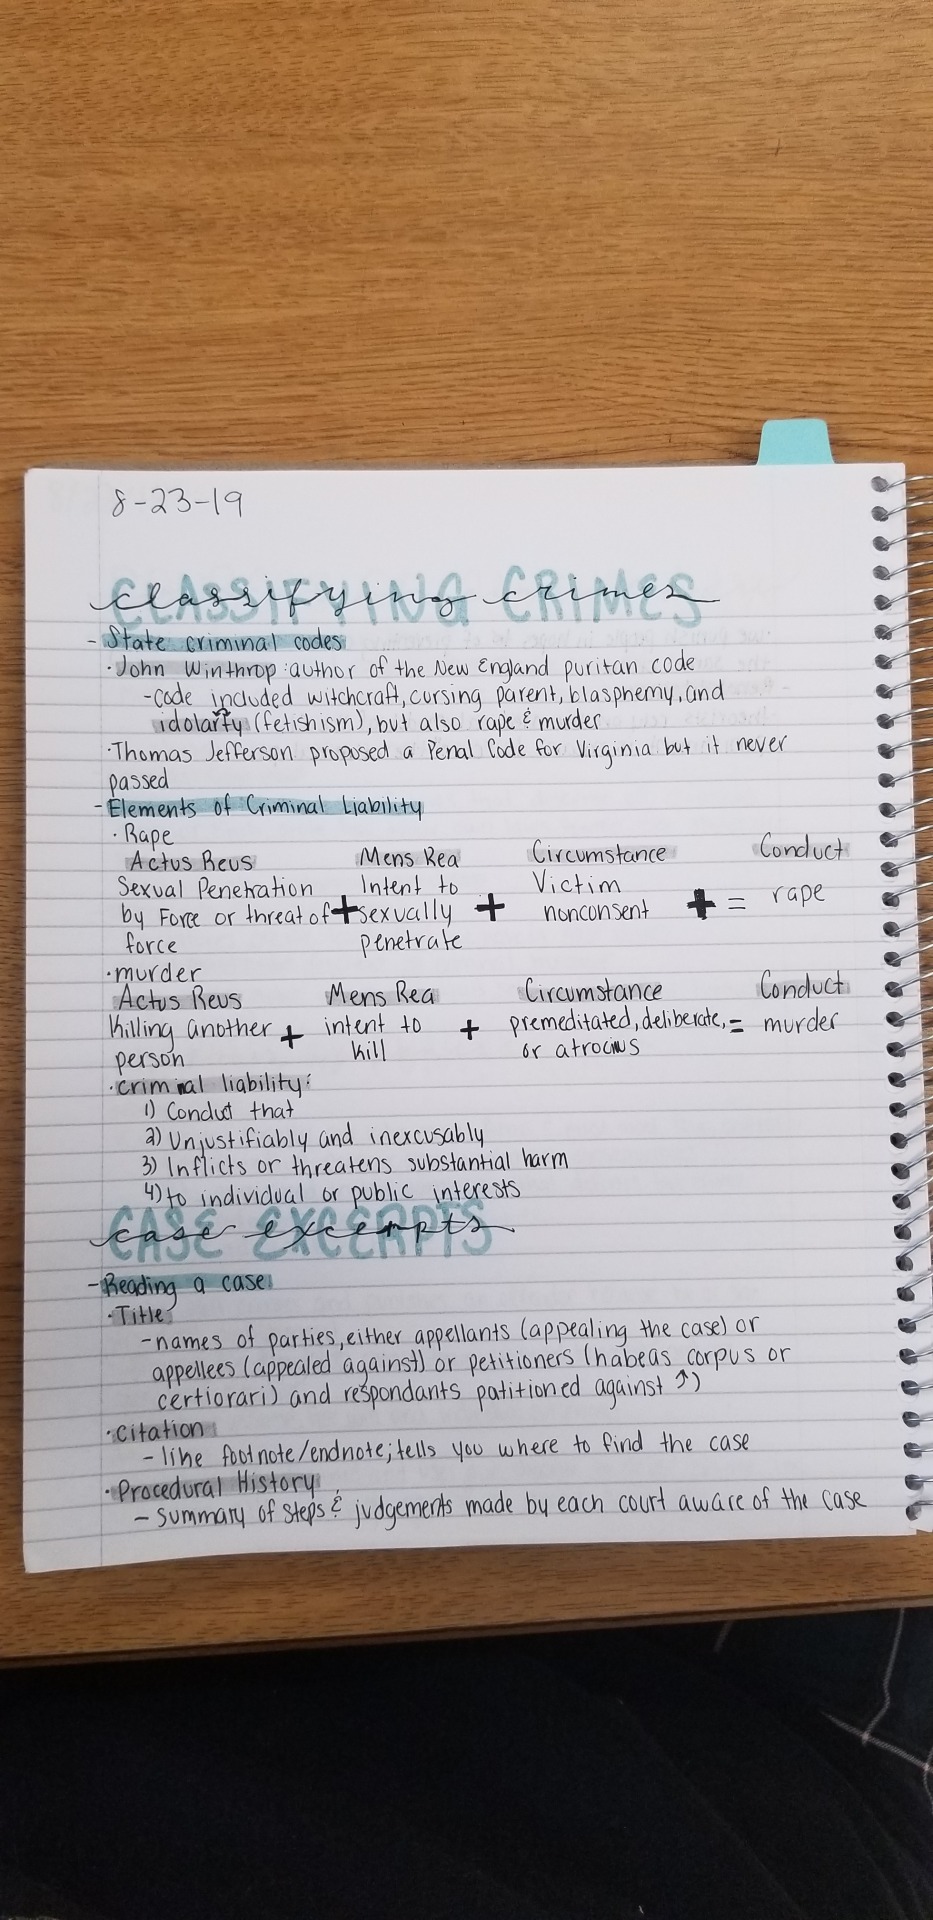 8-23-19
CLASSIFYING CRIMES
classifying crimes
- State criminal codes
· John Winthrop: author of the New England puritan code
- code included witchcraft, cursing parent, blasphemy, and
idolarty (fetishism), but also rape & murder
· Thomas Jefferson proposed a Penal Code for Virginia but it never
passed
- Elements of Criminal Liability
· Rape
Actus Reus Mens Rea Circumstance Conduct
Sexual Penetration Intent to Victim
by Force or threat of + sexually + nonconsent + = rape
force penetrate
· murder
Actus Reus Mens Rea Circumstance Conduct
Killing another + intent to + premeditated, deliberate, = murder
person kill or atrocius
· criminal liability:
1) Conduct that
2) Unjustifiably and inexcusably
3) Inflicts or threatens substantial harm
4) to individual or public interests
CASE EXCERPTS
case excerpts
- Reading a case
· Title
- names of parties, either appellants (appealing the case) or
appellees (appealed against) or petitioners (habeas corpus or
certiorari) and respondants patitioned against ↑)
· Citation
- like footnote/endnote; tells you where to find the case
· Procedural History
- Summary of steps & judgements made by each court aware of the case